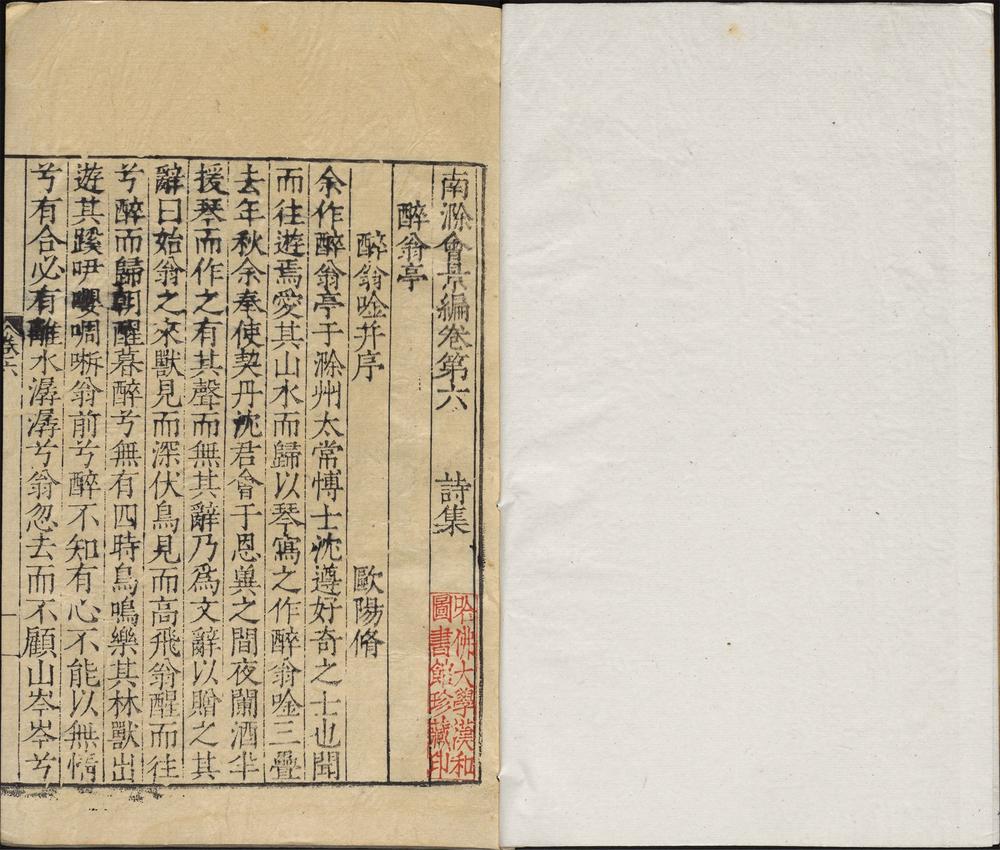 南滁會景編卷第六　詩集
醉翁亭
醉翁唫并序　歐陽脩
余作醉翁亭于滁州太常愽士沈遵好奇之士也聞
而往遊焉愛其山水而歸以琴寫之作醉翁唫三疊
去年秋余奉使契丹沈君會于恩兾之間夜闌酒半
援琴而作之有其聲而無其辭乃爲文辭以贈之其
辭曰始翁之來獸見而深伏鳥見而高飛翁醒而往
兮醉而歸朝醒暮醉兮無有四時鳥鳴樂其林獸出
遊其蹊咿嚶啁哳翁前兮醉不知有心不能以無情
兮有合必有離水潺潺兮翁忽去而不顧山岑岑兮
卷六
哈佛大學漢和圖書館珍藏印